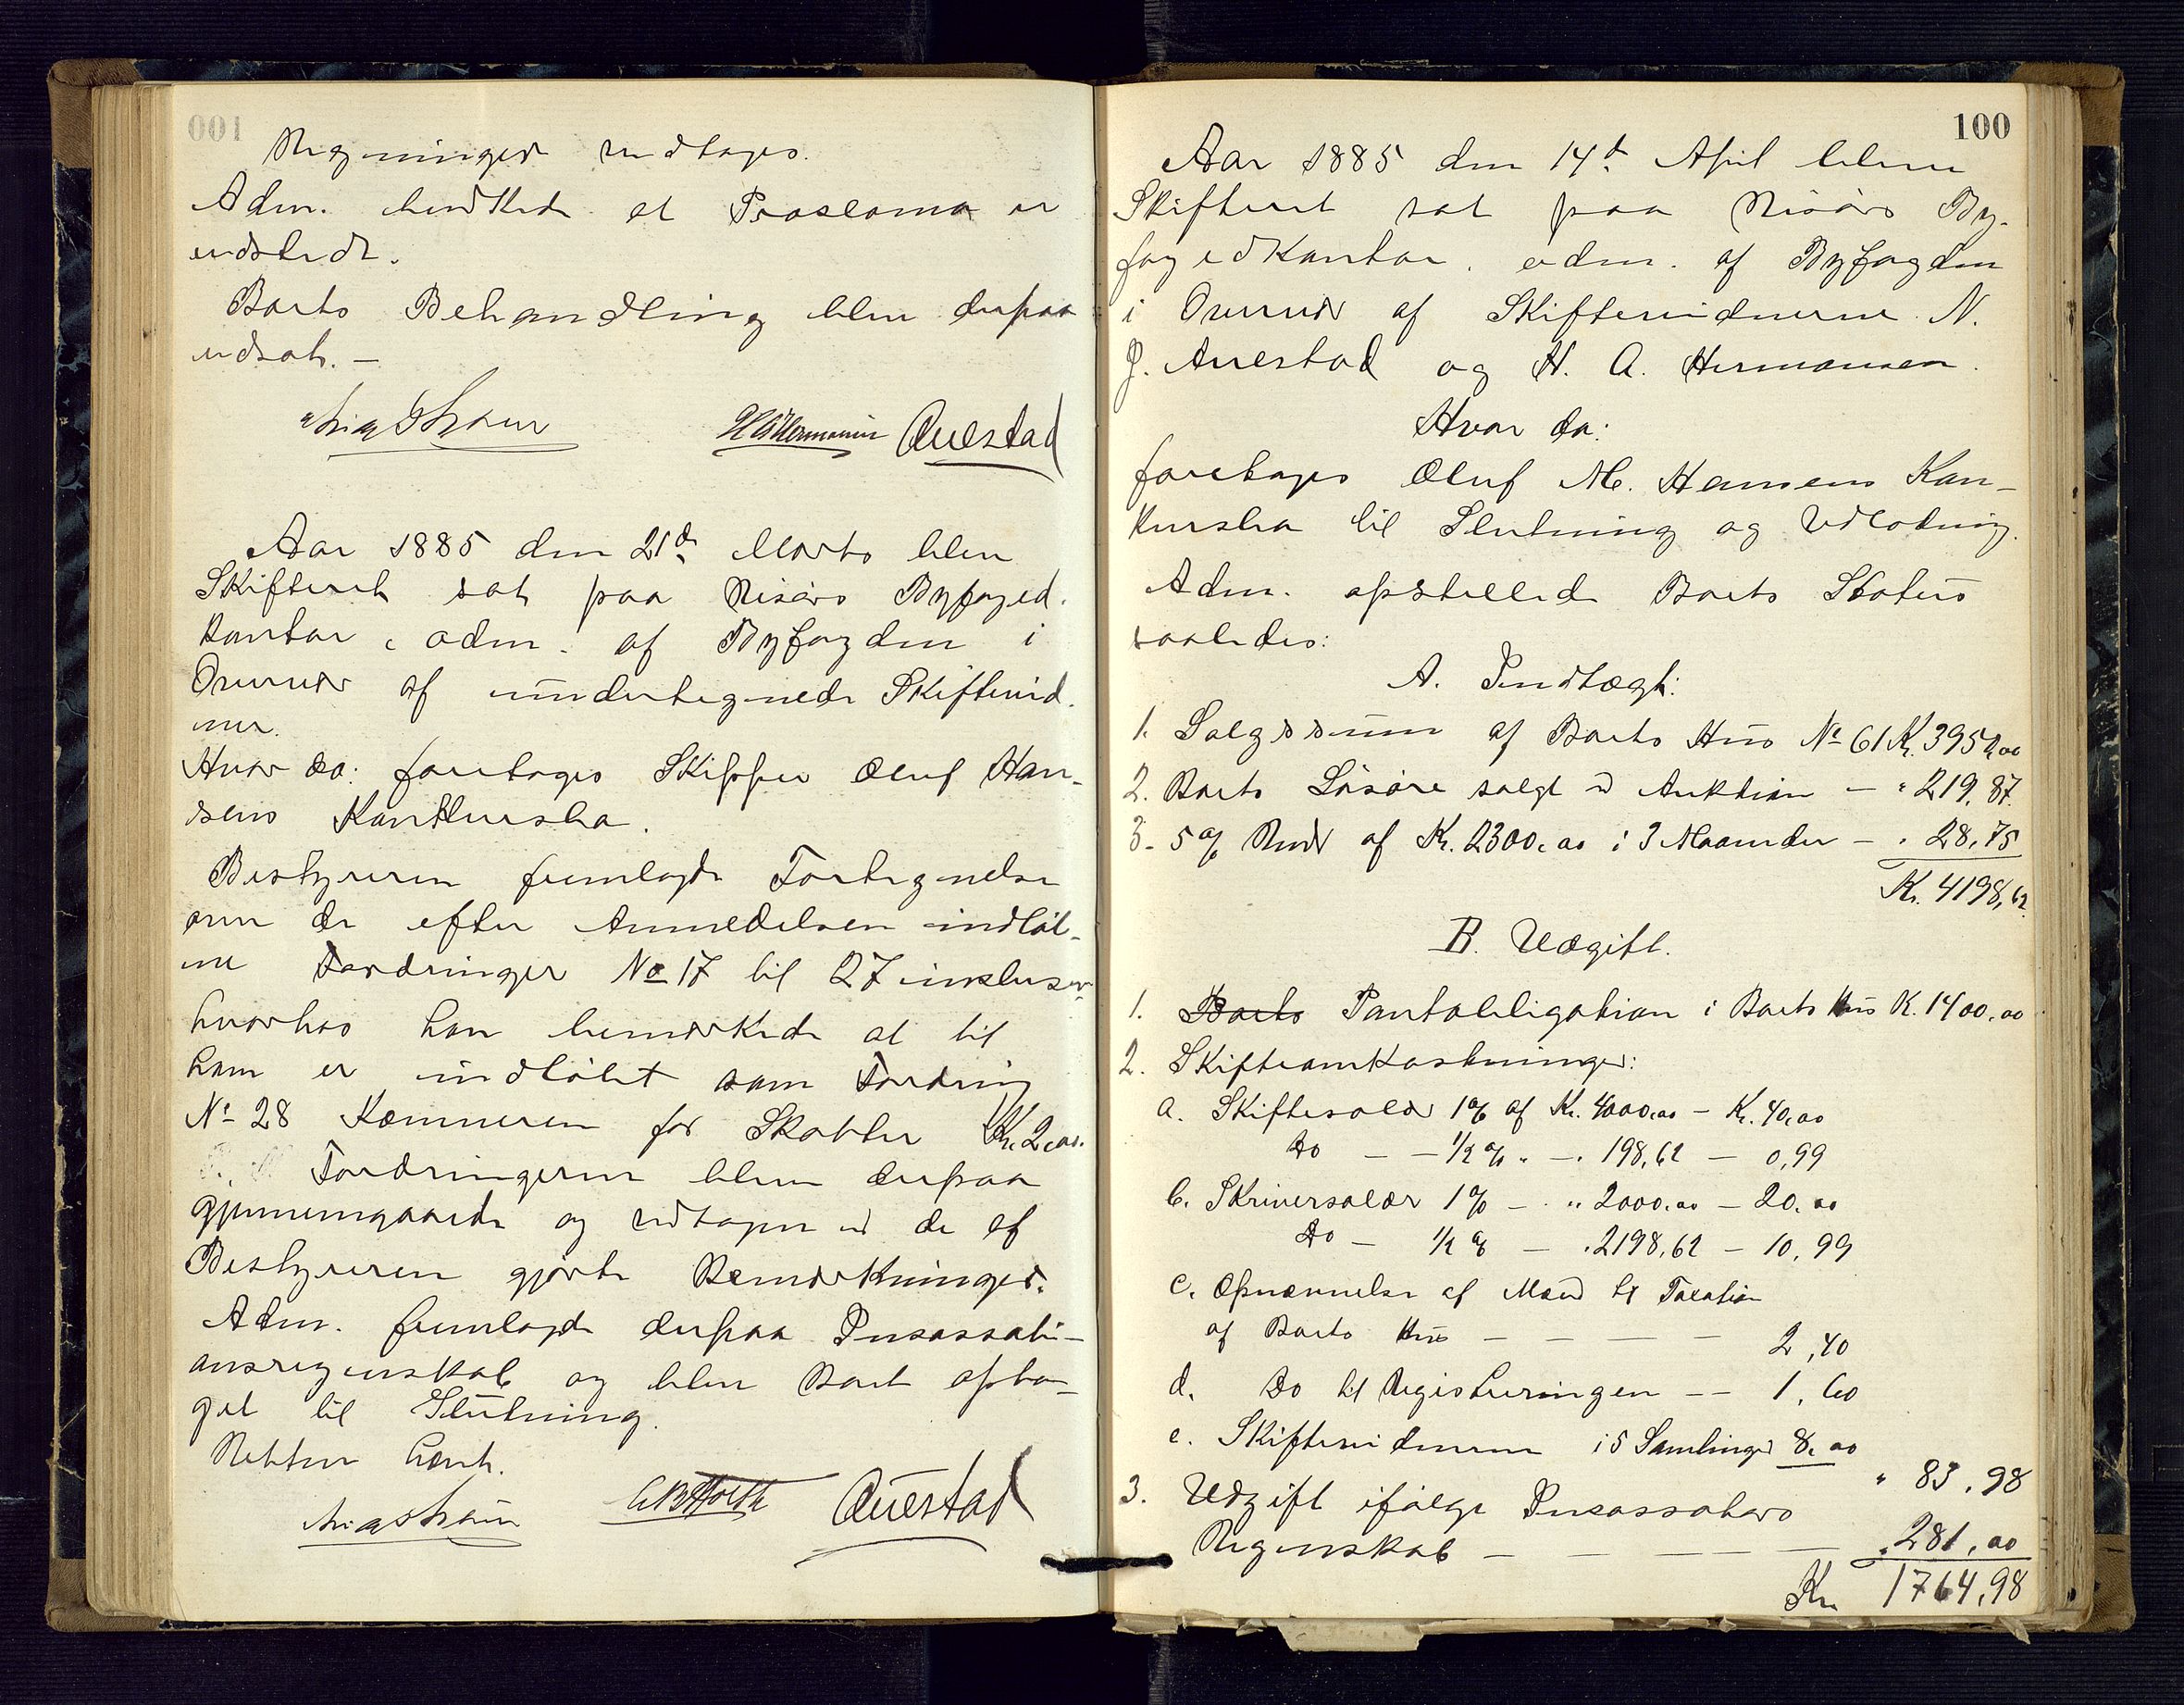 Regninger modtages.
Adm. bemærkede at Proclama er
udstedt.
Boets Behandling blev derpaa
udsat. —
HAHermansen Auestad
Aar 1885 den 21d Marts blev
Skifteret sat paa Risørs Byfoged-
kontor, adm. af Byfogden i
Overvær af undertegnede Skiftevid-
ner.
Hvor da: foretoges Skipper Oluf Han-
sens Konkursbo.
Bestyreren fremlagde Fortegnelse
over de efter Anmeldelsen indløb-
ne Fordringer No 17 til 27 inklusive
hvorhos han bemærkede at til
ham er indløbet som Fordring
No 28 Kæmneren for Skatter Kr. 2,00.
Fordringerne blev derpaa
gjennemgaaede og modtagen med de af
Bestyreren gjorte Bemærkninger.
Adm. fremlagde derpaa Incassati-
onsregnskab og blev Boet opta-
get til Slutning.
Retten hævt.
Auestad
100
Aar 1885 den 14d April blev
Skifteret sat paa Risørs By-
fogedkontor, adm. af Byfogden
i Overvær af Skiftevidnerne N.
J. Auestad og H. A. Hermansen.
Hvor da:
foretoges Oluf M. Hansens Kon-
kursbo til Slutning og Udlodning.
Adm. opstillede Boets Status
saaledes:
A. Indtægt:
1. Salgssum af Boets Hus No 61 Kr. 3950,00
2. Boets Løsøre solgt v Auktion — " 219,87.
3. 5 % Rente af Kr. 2300,00 i 3 Maaneder — " 28,75
Kr. 4198,62
B. Udgift.
1. Boets Pantobligation i Boets Hus K. 1400,00
2. Skifteomkostninger:
a. Skiftesalær 1 % af Kr. 4000,00 — Kr. 40,00
Do — — 1/2 % " — " 198,62 — 0,99
b. Skriversalær 1 % — " 2000,00 — 20,00
Do — 1/2 % — " 2198,62 — 10,99
c. Opnævnelse af Mænd til Taxation
af Boets Hus — — — — 2,40
d. Do til Registreringen — — 1,60
e. Skiftevidnerne i 5 Samlinger 8,00
" 83,98
3. Udgift ifølge Incassators
Regnskab — — — — " 281,00
Kr. 1764,98